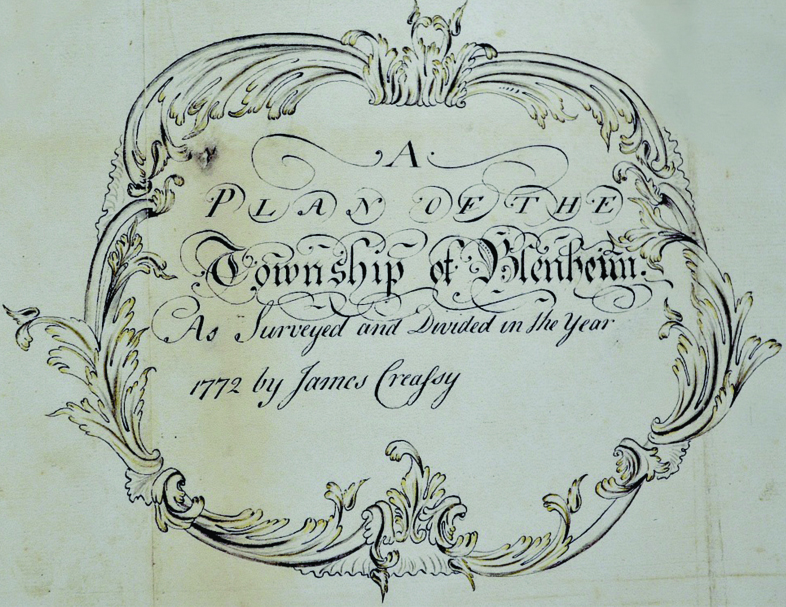 A
PLAN OF THE
Township of Blenheim.
As Surveyed and Divided in the Year
1772 by James Creaſsy